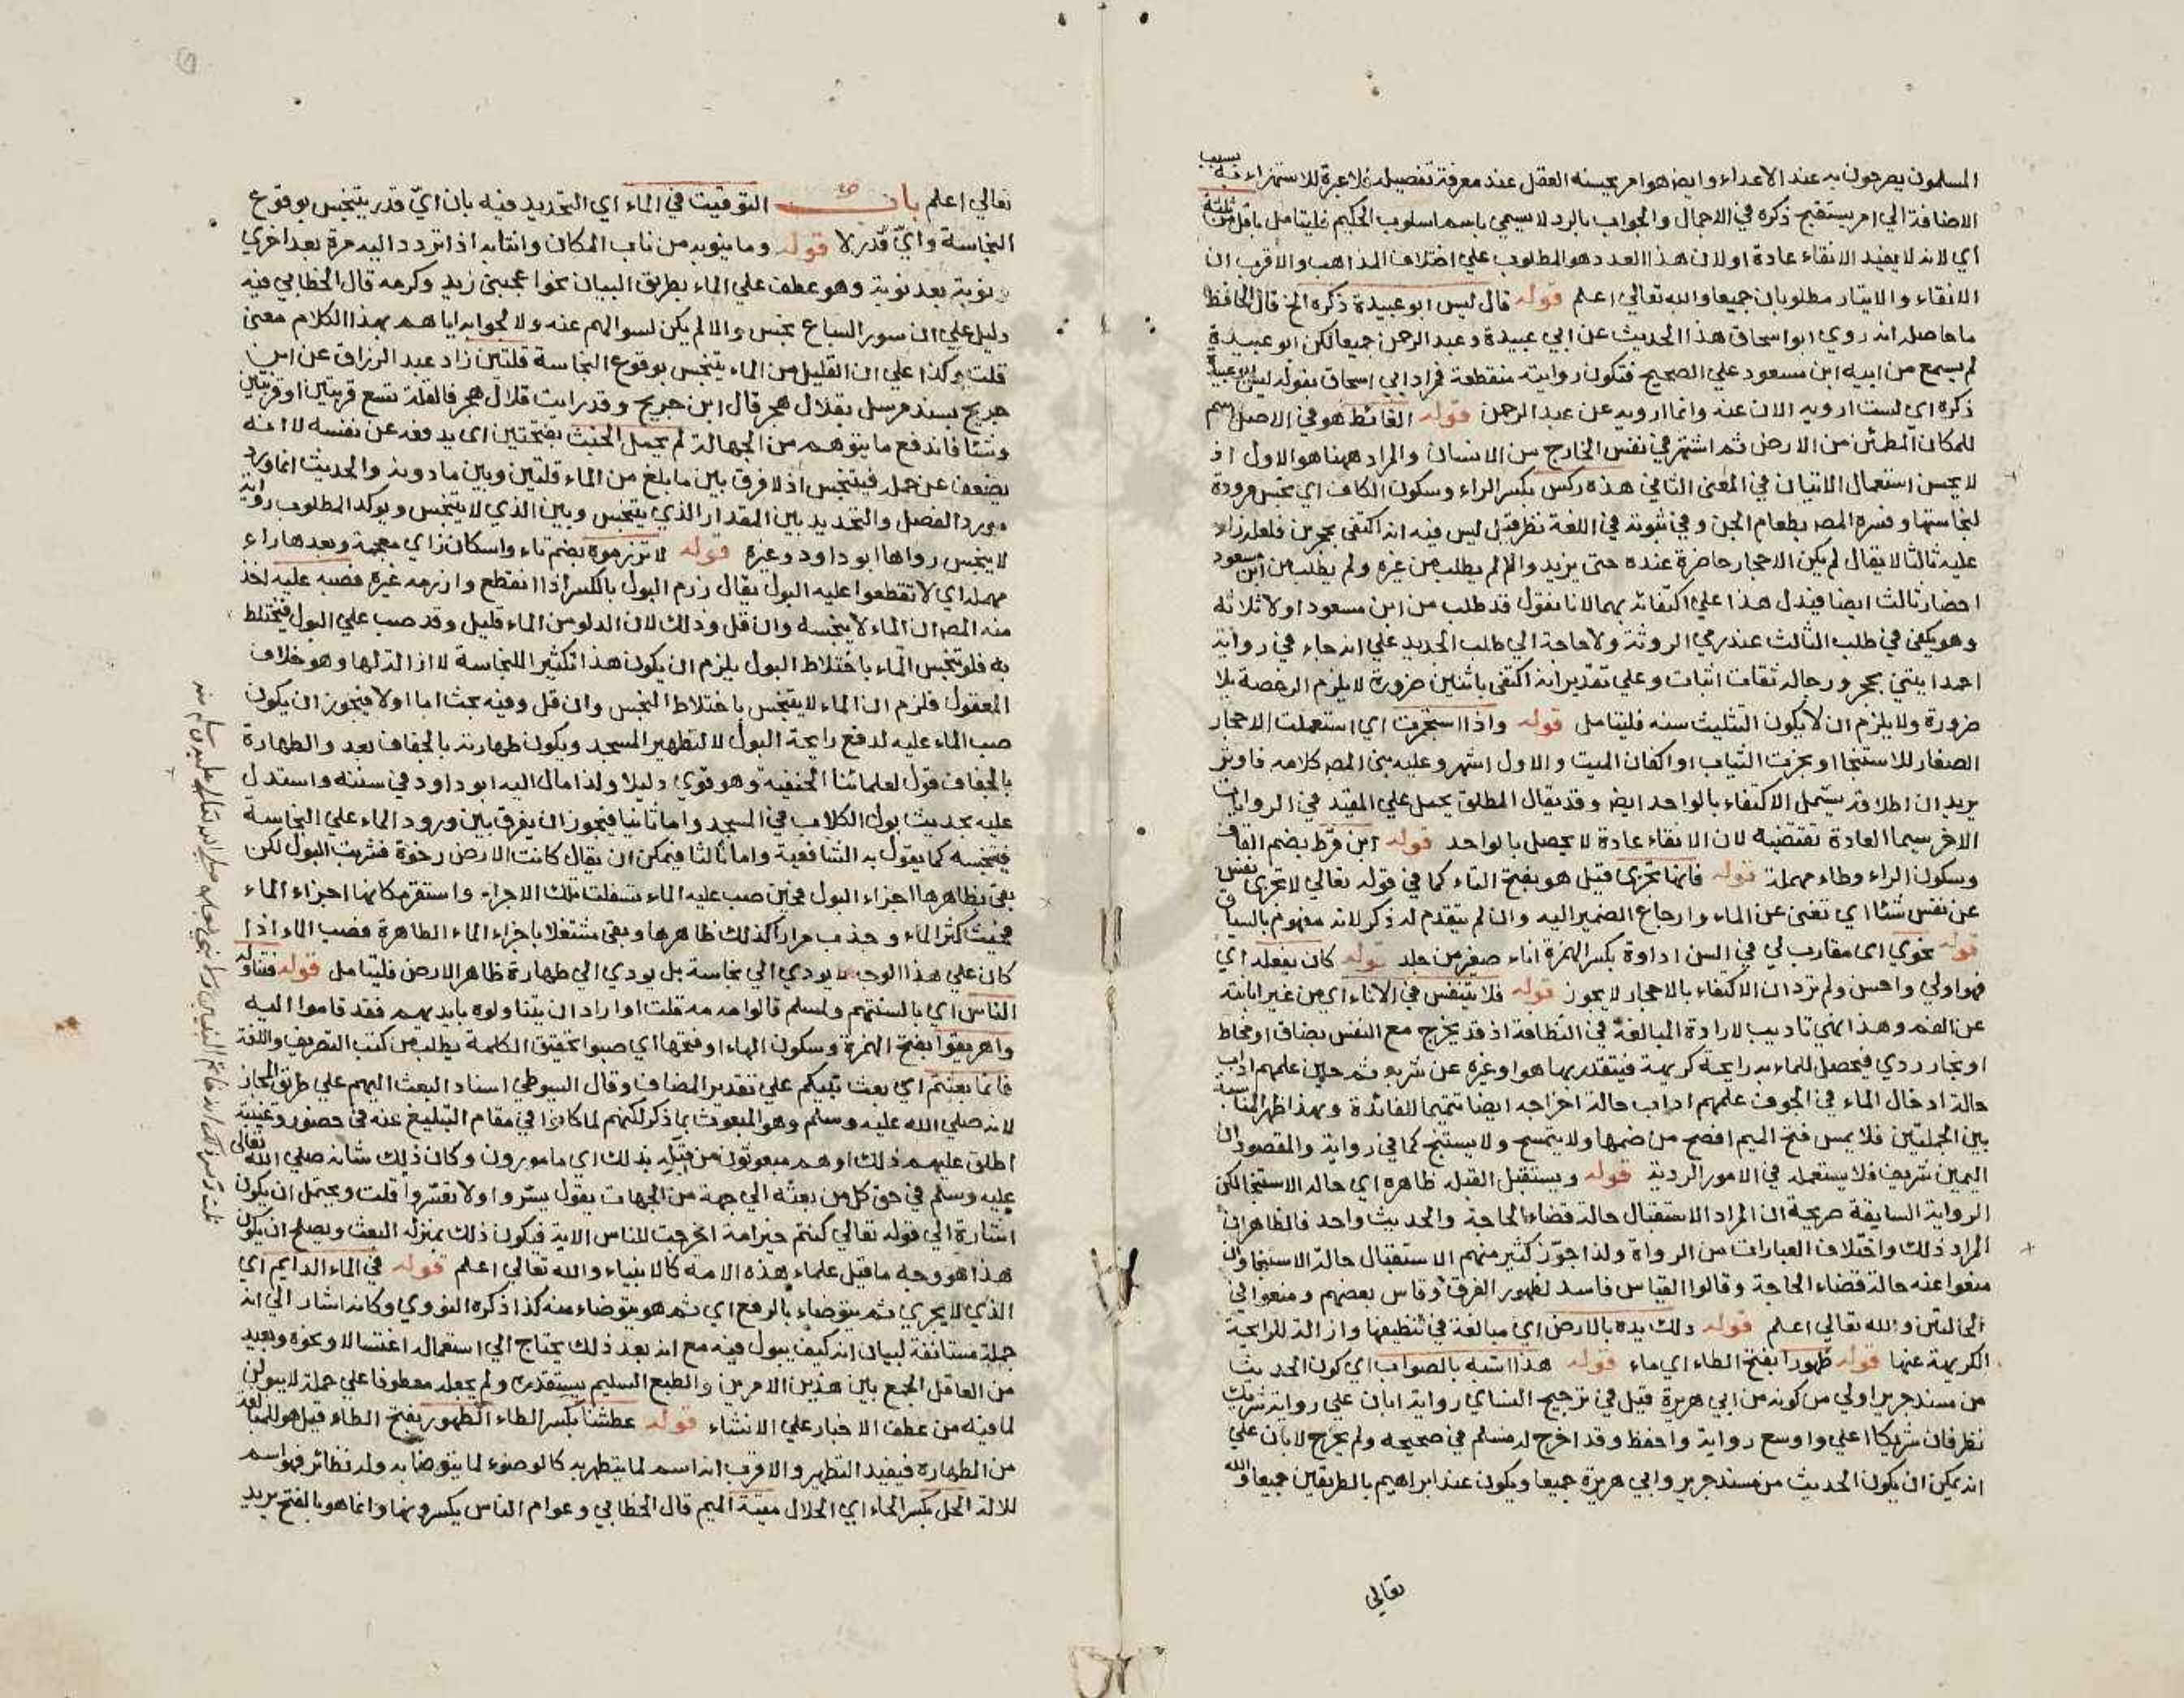 المسلمون يصرحون به عند الاعداء وايضا هو امر يحسنه العقل عند معرفة تفصيله فلا عبرة للاستهزاء به بسبب
الاضافة الي امر يستقبح ذكره في الاجمال والجواب بالرد لا يسمي باسم اسلوب الحكيم فليتامل باقل من ثلثة
اي لانه لا يفيد الانقاء عادة او لان هذا العدد هو المطلوب علي اختلاف المذاهب والأقرب ان
الانقاء والايتار مطلوبان جميعا والله تعالي اعلم قوله قال ليس ابو عبيدة ذكره الخ قال الحافظ
ما حاصله انه روي ابو اسحاق هذا الحديث عن ابي عبيدة وعبد الرحمن جميعا لكن ابو عبيدة
لم يسمع من ابيه ابن مسعود علي الصحيح فتكون روايته منقطعة فمراد ابي اسحاق بقوله ليس ابو عبيدة
ذكره اي لست ارويه الان عنه وانما ارويه عن عبد الرحمن قوله الغائط هو في الاصل اسم
للمكان المطمئن من الارض ثم اشتهر في نفس الخارج من الانسان والمراد ههنا هو الاول اذ
لا يحسن استعمال الاتيان في المعني الثاني هذه ركس بكسر الراء وسكون الكاف اي نجس مردودة
لنجاستها وفسره المص بطعام الجن وفي ثبوته في اللغة نظر قيل ليس فيه انه اكتفي بحجرين فلعله زاد
عليه ثالثا لا يقال لم يكن الاحجار حاضرة عنده حتى يزيد والا لم يطلب من غيره ولم يطلب من ابن مسعود
احضار ثالث ايضا فيدل هذا علي اكتفائه بهما لانا نقول قد طلب من ابن مسعود اولا ثلاثة
وهو يكفي في طلب الثالث عند رمي الروثة ولا حاجة الي طلب الجديد علي انه جاء في رواية
احمد ايتني بحجر ورجاله ثقات اثبات وعلي تقدير انه اكتفي باثنين ضرورة لا يلزم الرخصة بلا
ضرورة ولا يلزم ان لا يكون التثليث سنه فليتامل قوله واذا استجمرت اي استعملت الاحجار
الصغار للاستنجا او بخرت الثياب او اكفان الميت والاول اشهر وعليه بني المص كلامه فاوتر
يريد ان اطلاقه يشمل الاكتفاء بالواحد ايض وقد يقال المطلق يحمل علي المقيد في الروايات
الاخر سيما العادة تقتضيه لان الانقاء عادة لا يحصل بالواحد قوله ابن قرط بضم القاف
وسكون الراء وطاء مهملة قوله فانها تجزي قيل هو بفتح التاء كما في قوله تعالي لا تجزي نفس
عن نفس شئا اي تغني عن الماء وارجاع الضمير اليه وان لم يتقدم له ذكر لانه مفهوم بالسياق
قوله نحوي اي مقارب لي في السن اداوة بكسر الهمزة اناء صغير من جلد قوله كان يفعله اي
فهو اولي واحسن ولم ترد ان الاكتفاء بالاحجار لا يجوز قوله فلا يتنفس في الاناء اي من غير ابانته
عن الفم وهذا نهي تاديب لارادة المبالغة في النظافة اذ قد يخرج مع النفس بصاق او مخاط
او بخار ردي فيحصل للماء به رايحة كريهة فيتقذر بها هو او غيره عن شربه ثم حين علمهم اداب
حالة ادخال الماء في الجوف علمهم اداب حالة اخراجه ايضا تتميما للفائدة وبهذا ظهر المناسبة
بين الجملتين فلا يمس فتح الميم افصح من ضمها ولا يتمسح ولا يستنج كما في رواية والمقصود ان
اليمين شريف فلا يستعمله في الامور الردية قوله ويستقبل القبله ظاهره اي حاله الاستنجا لكن
الرواية السابقة صريحة ان المراد الاستقبال حالة قضاء الحاجة والحديث واحد فالظاهر ان
المراد ذلك واختلاف العبارات من الرواة ولذا جوّز كثير منهم الاستقبال حالة الاستنجا وان
منعوا عنه حالة قضاء الحاجة وقالوا القياس فاسد لظهور الفرق وقاس بعضهم ومنعوا في
الحالتين والله تعالي اعلم قوله دلك يده بالارض اي مبالغة في تنظيفها وازالة للرايحة
الكريهة عنها قوله طهورا بفتح الطاء اي ماء قوله هذا اشبه بالصواب اي كون الحديث
من مسند جرير اولي من كونه من ابي هريرة قيل في ترجيح النساي رواية ابان علي رواية شريك
نظر فان شريكا اعلي واوسع رواية واحفظ وقد اخرج له مسلم في صحيحه ولم يخرج لابان علي
انه يمكن ان يكون الحديث من مسند جرير وابي هريرة جميعا ويكون عند ابراهيم بالطريقين جميعا والله
تعالي
تعالي اعلم باب التوقيت في الماء اي التحديد فيه بان ايّ قدر يتنجس بوقوع
النجاسة وايّ قدر لا قوله وما ينوبه من ناب المكان وانتابه اذا تردد اليه مرة بعد اخري
ونوبة بعد نوبة وهو عطف علي الماء بطريق البيان نحو اعجبني زيد وكرمه قال الخطابي فيه
دليل علي ان سور السباع نجس والا لم يكن لسوالهم عنه ولا لجوابه اياهم بهذا الكلام معني
قلت وكذا علي ان القليل من الماء يتنجس بوقوع النجاسة قلتين زاد عبد الرزاق عن ابن
جريج بسند مرسل بقلال هجر قال ابن جريج وقد رايت قلال هجر فالقلة تسع قربتين او قربتين
وشئا فاندفع ما يتوهم من الجهالة لم يحمل الخبث بفتحتين اي يدفعه عن نفسه لا انه
يضعف عن حمله فيتنجس اذ لا فرق بين ما بلغ من الماء قلتين وبين ما دونه والحديث انما ورد
مورد الفصل والتحديد بين المقدار الذي يتنجس وبين الذي لا يتنجس ويوكد المطلوب رواية
لا ينجس رواها ابو داود وغيره قوله لا تزرموه بضم تاء واسكان زاي معجمة وبعدها راء
مهمله اي لا تقطعوا عليه البول يقال زرم البول بالكسر اذا انقطع وازرمه غيره فصبه عليه اخذ
منه المص ان الماء لا ينجسه وان قل وذلك لان الدلو من الماء قليل وقد صب علي البول فيختلط
به فلو تنجس الماء باختلاط البول يلزم ان يكون هذا تكثيرا للنجاسة لا ازالة لها وهو خلاف
المعقول فلزم ان الماء لا يتنجس باختلاط النجس وان قل وفيه بحث اما اولا فيجوز ان يكون
صب الماء عليه لدفع رايحة البول لا لتطهير المسجد ويكون طهارته بالجفاف بعد والطهارة
بالجفاف قول لعلمائنا الحنفية وهو قوي دليلا ولذا مال اليه ابو داود في سننه واستدل
عليه بحديث بول الكلاب في المسجد واما ثانيا فيجوز ان يفرق بين ورود الماء علي النجاسة
فيتنجسه كما يقول به الشافعية واما ثالثا فيمكن ان يقال كانت الارض رخوة فشربت البول لكن
بقي بظاهرها اجزاء البول فحين صب عليه الماء تسفلت تلك الاجزاء واستقر مكانها اجزاء الماء
فحيث كثر الماء وجذب مرارا كذلك ظاهرها وبقي مشتغلا باجزاء الماء الطاهرة فصب الماء اذا
كان علي هذا الوجه لا يودي الي نجاسة بل يودي الي طهارة ظاهر الارض فليتامل قوله فتناوله
الناس اي بالسنتهم ولمسلم قالوا مه مه قلت او اراد ان يتناولوه بايديهم فقد قاموا اليه
واهريقوا بفتح الهمزة وسكون الهاء او فتحها اي صبوا تحقيق الكلمة يطلب من كتب التصريف واللغة
فانما بعثتم اي بعث نبيكم علي تقدير المضاف وقال السيوطي اسناد البعث اليهم علي طريق المجاز
لانه صلي الله عليه وسلم وهو المبعوث بما ذكر لكنهم لما كانوا في مقام التبليغ عنه في حضوره وغيبته
اطلق عليهم ذلك او هم مبعوثون من قبله بذلك اي مامورون وكان ذلك شانه صلي الله تعالي
عليه وسلم في حق كل من بعثه الي جهة من الجهات يقول يسّروا ولا تعسّروا قلت ويحتمل ان يكون
اشارة الي قوله تعالي كنتم خير امة اخرجت للناس الاية فيكون ذلك بمنزلة البعث ويصلح ان يكون
هذا هو وجه ما قيل علماء هذه الامه كالانبياء والله تعالي اعلم قوله في الماء الدايم اي
الذي لا يجري ثم يتوضاء بالرفع اي ثم هو يتوضاء منه كذا ذكره النووي وكانه اشار الي انه
جملة مستانفة لبيان انه كيف يبول فيه مع انه بعد ذلك يحتاج الي استعماله اغتسالا ونحوه وبعيد
من العاقل الجمع بين هذين الامرين والطبع السليم يستقذره ولم يجعله معطوفا علي جملة لا يبولن
لما فيه من عطف الاخبار علي الانشاء قوله عطشنا بكسر الطاء الطهور بفتح الطاء قيل هو للمبالغة
من الطهارة فيفيد التطهير والاقرب انه اسم لما يتطهر به كالوضوء لما يتوضا به وله نظائر فهو اسم
للالة الحل بكسر الحاء اي الحلال ميتة الميم قال الخطابي وعوام الناس يكسرونها وانما هو بالفتح يريد